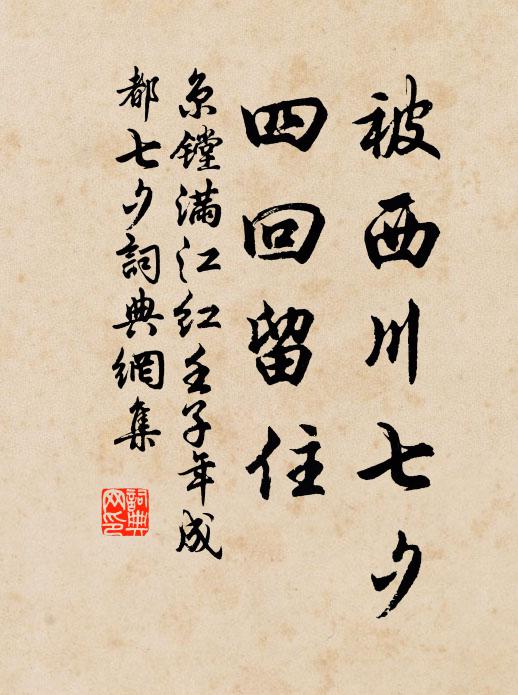 被西川七夕
四回留住
京鏜满江红壬子年成
都七夕詞典網集
詞典
网印